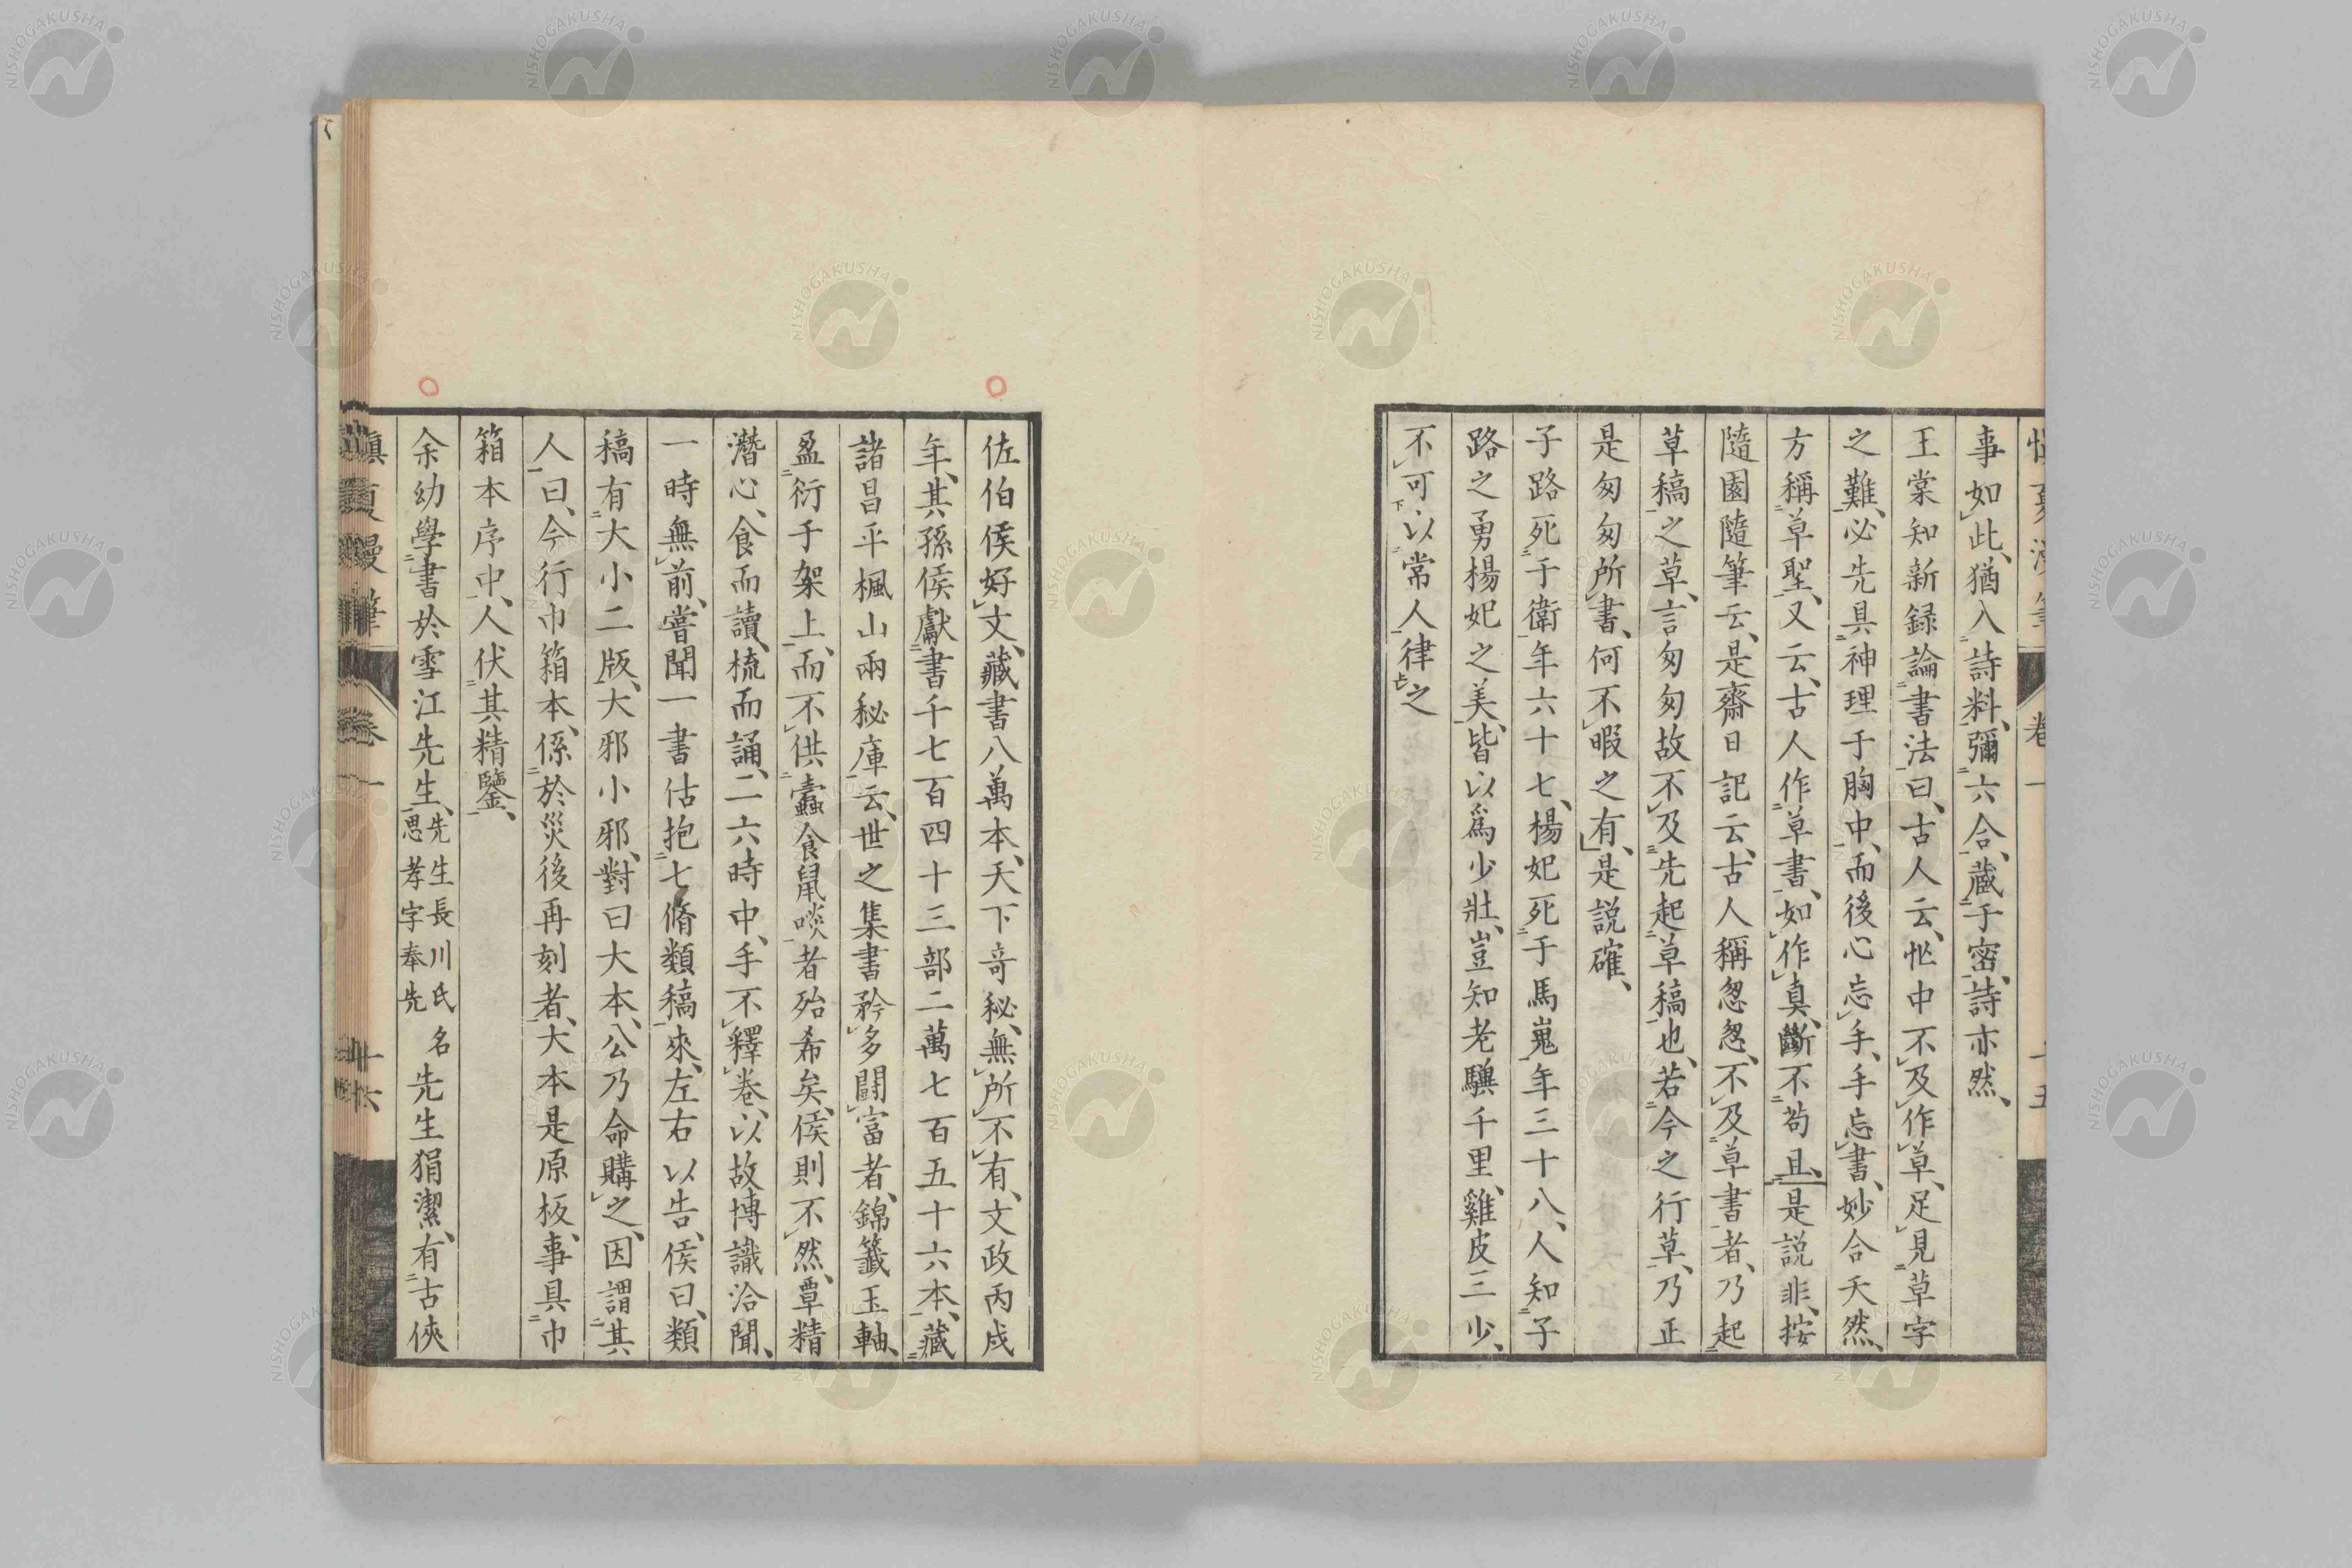 事如此、猶入詩料、彌六合、藏于密、詩亦然、
王棠知新録論書法曰、古人云、忙中不及作草、足見草字
之難、必先具神理于胸中、而後心忘手、手忘書、妙合天然、
方稱草聖、又云、古人作草書、如作真、斷不苟且、是説非、按
隨園隨筆云、是齋日記云、古人稱怱怱、不及草書者、乃起
草稿之草、言匆匆故不及先起草稿也、若今之行草、乃正
是匆匆所書、何不暇之有、是説確、
子路死于衛年六十七、楊妃死于馬嵬年三十八、人知子
路之勇楊妃之美、皆以爲少壯、豈知老驥千里、雞皮三少、
不可以常人律之
佐伯侯好文、藏書八萬本、天下奇秘、無所不有、文政丙戌
年、其孫侯獻書千七百四十三部二萬七百五十六本、藏
諸昌平楓山兩秘庫云、世之集書矜多鬪富者、錦籤玉軸、
盈衍于架上、而不供蠹食鼠啖者殆希矣、侯則不然、覃精
潛心、食而讀、梳而誦、二六時中、手不釋巻、以故博識洽聞、
一時無前、嘗聞一書估抱七脩類稿來、左右以告、侯曰、類
稿有大小二版、大邪小邪、對曰大本、公乃命購之、因謂其
人曰、今行巾箱本、係於災後再刻者、大本是原板、事具巾
箱本序中、人伏其精鑒、
余幼學書於雪江先生、先生長川氏名
思孝字奉先
先生狷潔、有古俠
慎夏漫筆 巻一 十六